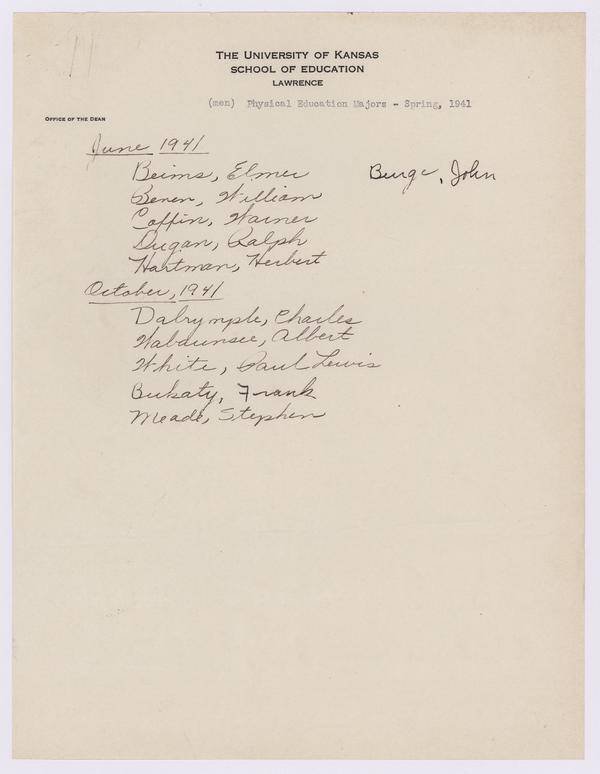 THE UNIVERSITY OF KANSAS
SCHOOL OF EDUCATION
LAWRENCE
(men) Physical Education Majors - Spring, 1941
OFFICE OF THE DEAN
June 1941
Beims, Elmer
Burge, John
Benen, William
Coffin, Warner
Dugan, Ralph
Hartman, Herbert
October, 1941
Dalrymple, Charles
Wabaunsee, Albert
White, Paul Lewis
Bukaty, Frank
Meade, Stephen